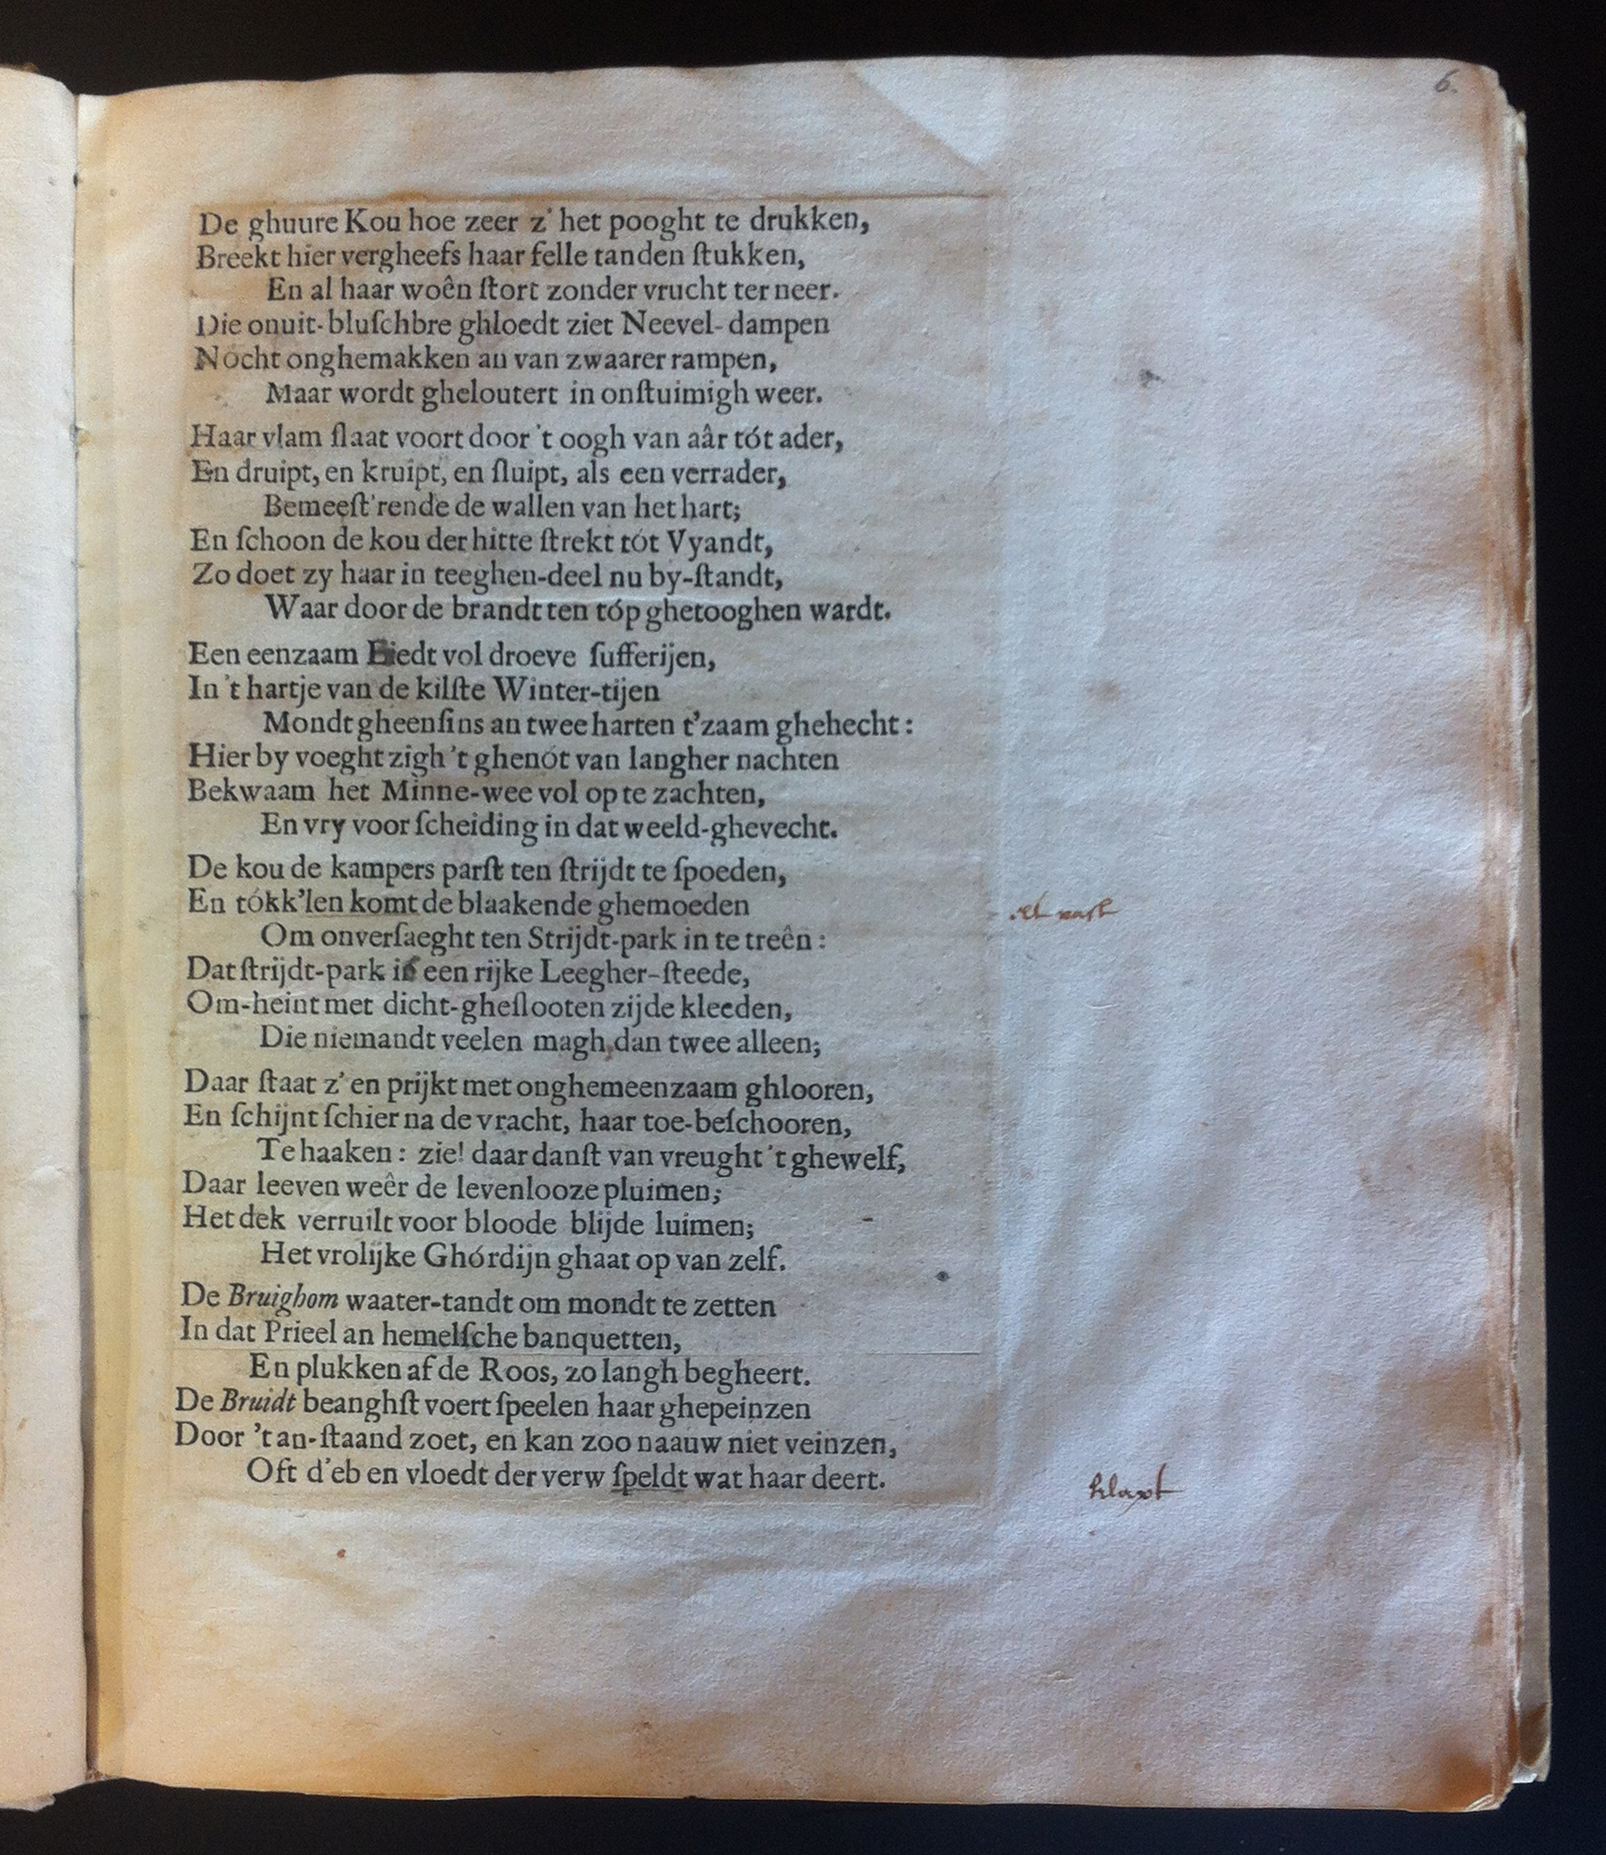 6.
De ghuure Kou hoe zeer z' het pooght te drukken,
Breekt hier vergheefs haar felle tanden ſtukken,
En al haar woên ſtort zonder vrucht ter neer.
Die onuit-bluſchbre ghloedt ziet Neevel-dampen
Nócht onghemakken an van zwaarer rampen,
Maar wordt gheloutert in onſtuimigh weer.
Haar vlam ſlaat voort door 't oogh van aâr tót ader,
En druipt, en kruipt, en ſluipt, als een verrader,
Bemeeſt'rende de wallen van het hart;
En ſchoon de kou der hitte ſtrekt tót Vyandt,
Zo doet zy haar in teeghen-deel nu by-ſtandt,
Waar door de brandt ten tóp ghetooghen wardt.
Een eenzaam vol droeve ſufferijen,
In 't hartje van de kilſte Winter-tijen
Mondt gheenſins an twee harten t'zaam ghehecht:
Hier by voeght zigh 't ghenót van langher nachten
Bekwaam het Minne-wee vol op te zachten,
En vry voor ſcheiding in dat weeld-ghevecht.
De kou de kampers parſt ten ſtrijdt te ſpoeden,
En tókk'len komt de blaakende ghemoeden
Om onverſaeght ten Strijdt-park in te treên:
Dat ſtrijdt-park is een rijke Leegher-ſteede,
Om-heint met dicht-gheſlooten zijde kleeden,
Die niemandt veelen magh dan twee alleen;
Daar ſtaat z' en prijkt met onghemeenzaam ghlooren,
En ſchijnt ſchier na de vracht, haar toe-beſchooren,
Te haaken: zie! daar danſt van vreught 't ghewelf,
Daar leeven weêr de levenlooze pluimen;
Het dek verruilt voor bloode blijde luimen;
Het vrolijke Ghórdijn ghaat op van zelf.
De Bruighom waater-tandt om mondt te zetten
In dat Prieel an hemelſche banquetten,
En plukken af de Roos, zo langh begheert.
De Bruidt beanghſt voert ſpeelen haar ghepeinzen
Door 't an-ſtaand zoet, en kan zoo naauw niet veinzen,
Oft d'eb en vloedt der verw ſpeldt wat haar deert.
klapt